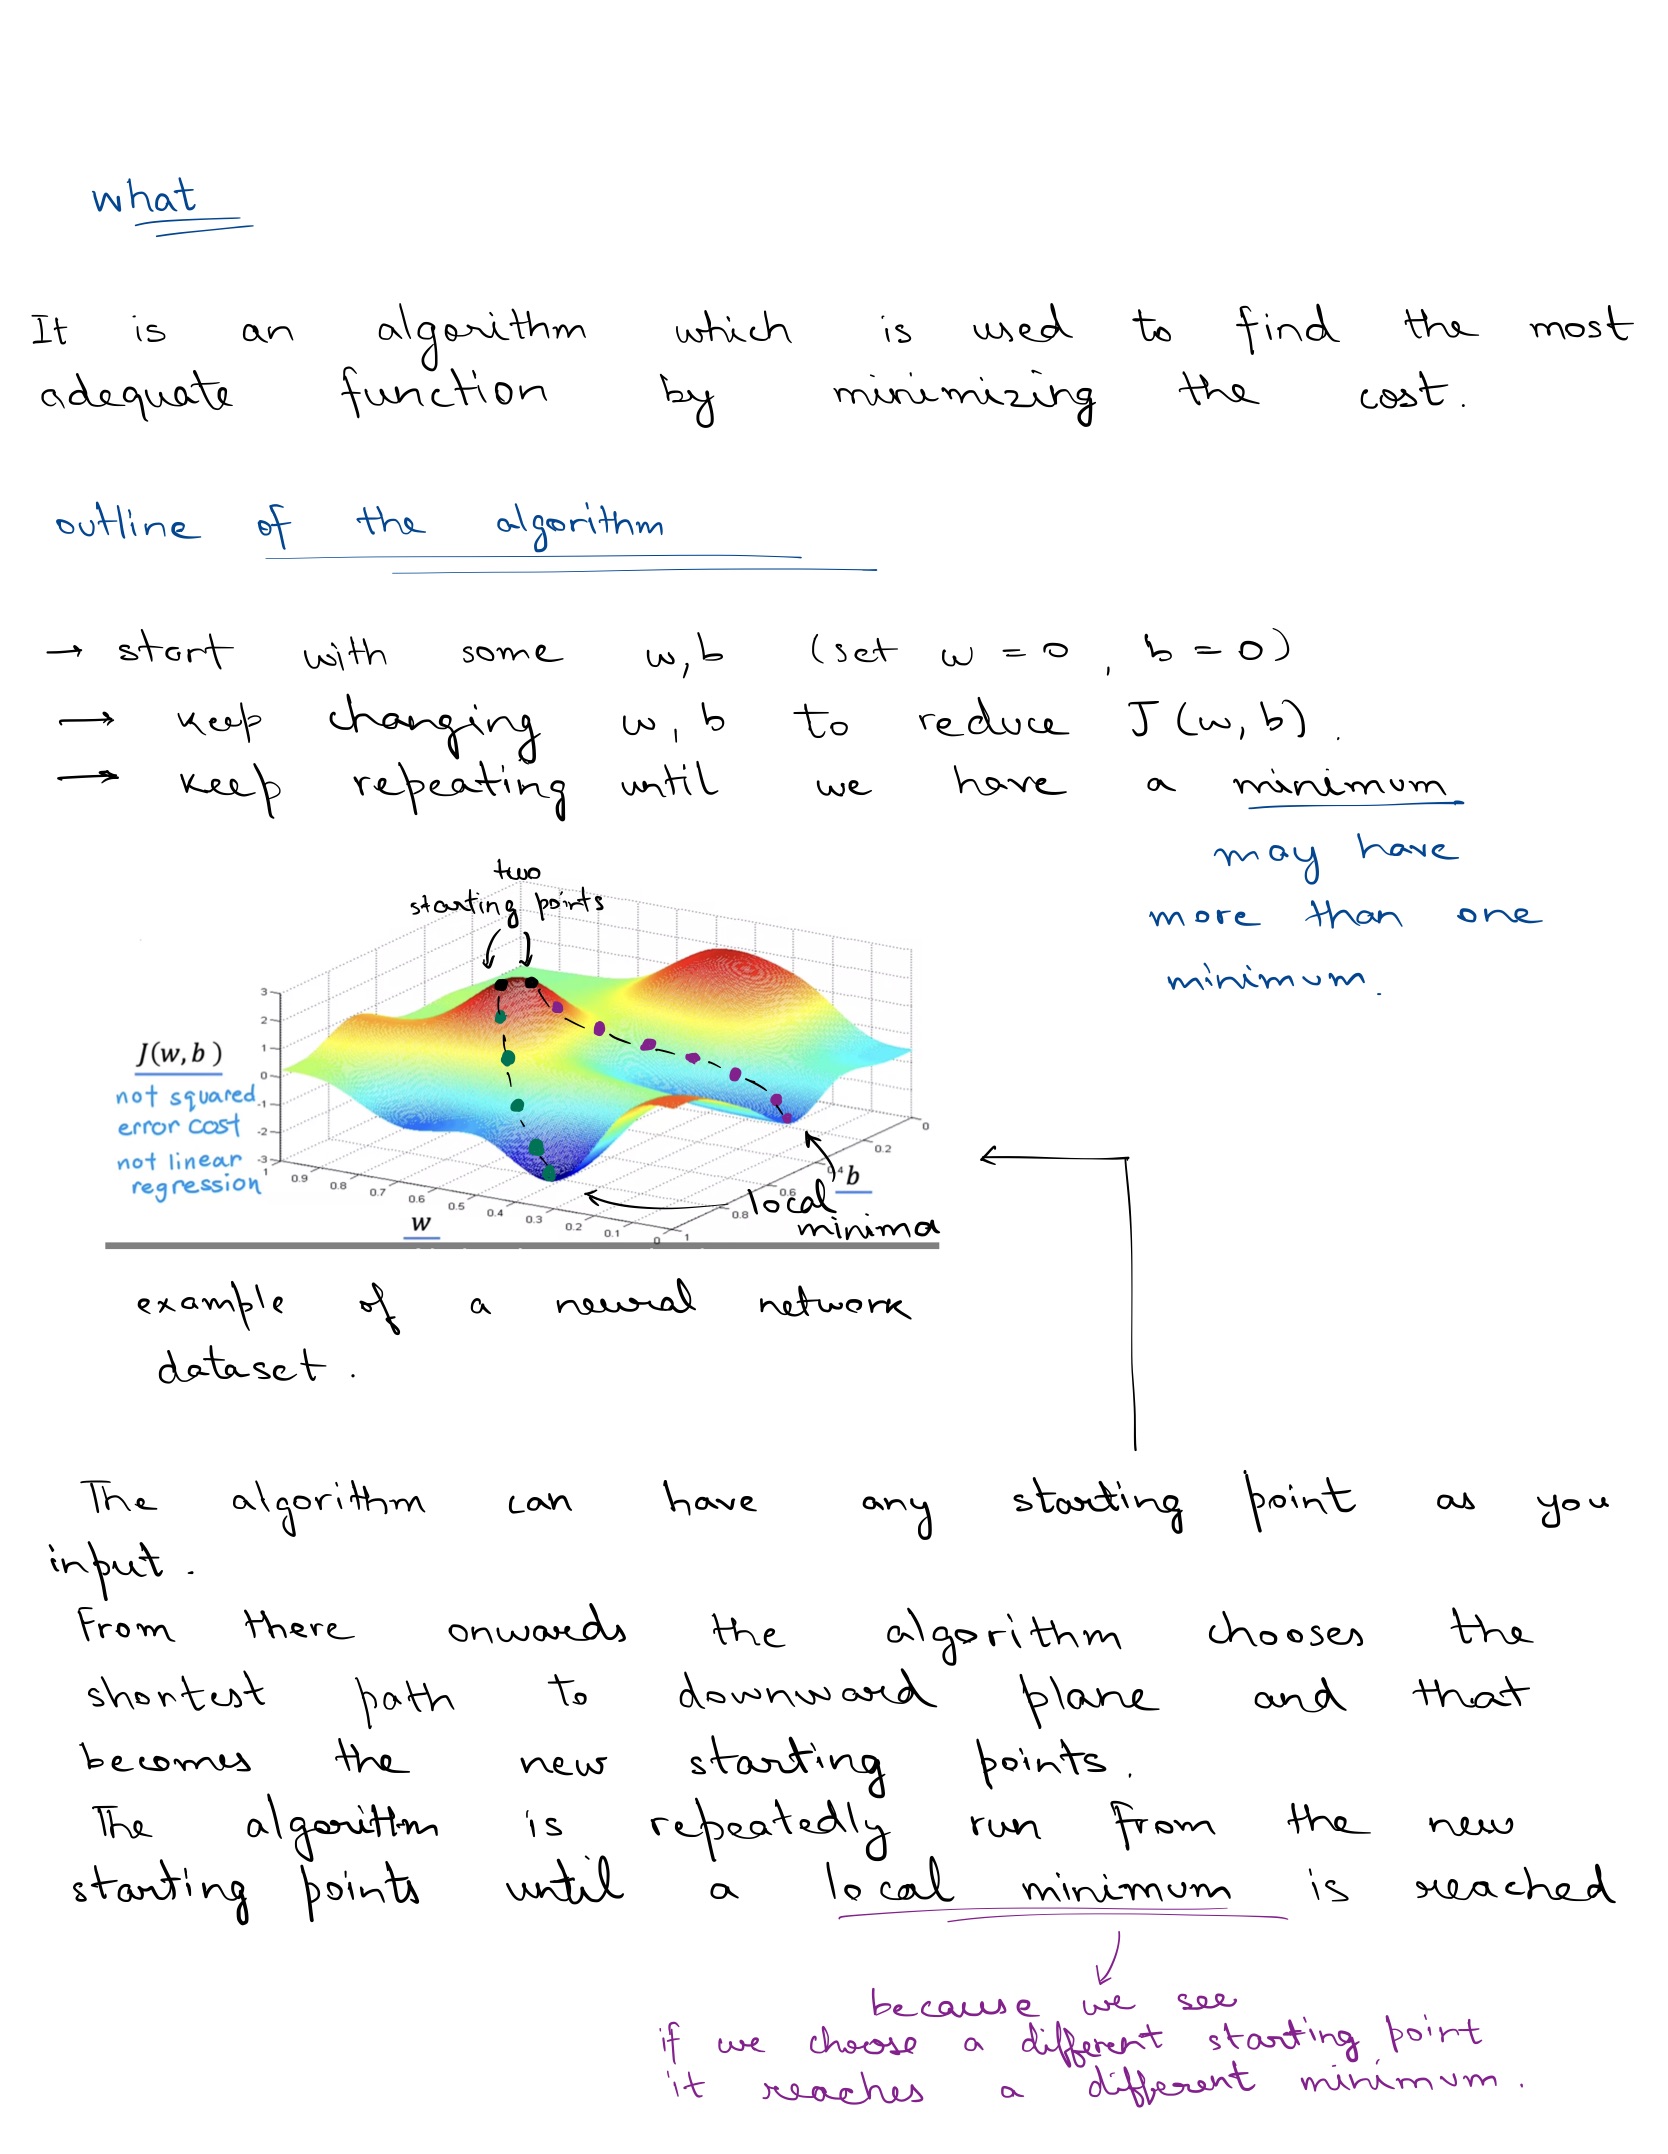 what
It is an algorithm which is used to find the most
adequate function by minimizing the cost.
outline of the algorithm
→ start with some w,b (set w = 0, b = 0)
→ keep changing w, b to reduce J(w, b).
→ keep repeating until we have a minimum
may have
more than one
minimum.
two
starting points
3
2
1
0
-1
-2
-3
J(w,b)
not squared
error cost
not linear
regression
1
0.9
0.8
0.7
0.6
0.5
0.4
0.3
0.2
0.1
0
w
1
0.8
0.6
0.4
0.2
0
b
local
minima
example of a neural network
dataset.
The algorithm can have any starting point as you
input.
From there onwards the algorithm chooses the
shortest path to downward plane and that
becomes the new starting points.
The algorithm is repeatedly run from the new
starting points until a local minimum is reached
because we see
if we choose a different starting point
it reaches a different minimum.